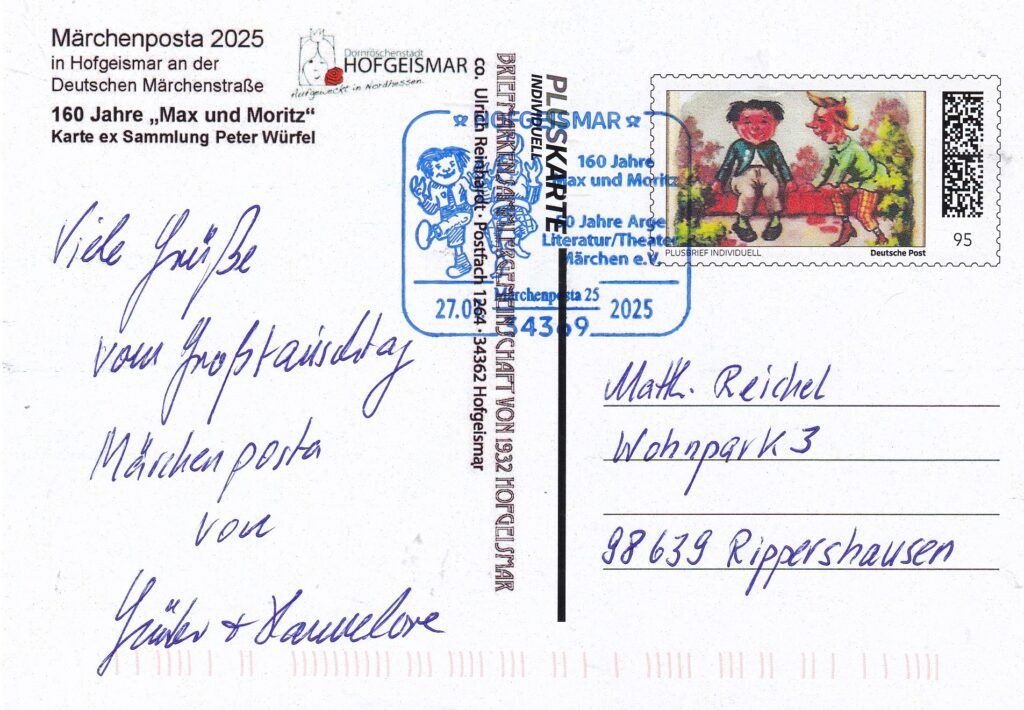 Märchenposta 2025
in Hofgeismar an der
Deutschen Märchenstraße
160 Jahre „Max und Moritz“
Karte ex Sammlung Peter Würfel
Dornröschenstadt
HOFGEISMAR
Aufgeweckt in Nordhessen.
Viele Grüße
vom Großtauschtag
Märchenposta
von
Günter + Hannelore
co. Ulrich Reinhardt · Postfach 1264 · 34362 Hofgeismar
BRIEFMARKENSAMMLERGEMEINSCHAFT VON 1932 HOFGEISMAR
PLUSKARTE
INDIVIDUELL
HOFGEISMAR
160 Jahre
Max und Moritz
0 Jahre Arge
Literatur/Theater
Märchen e.V.
Märchenposta 25
27.0 2025
34369
95
PLUSBRIEF INDIVIDUELL
Deutsche Post
Matth. Reichel
Wohnpark 3
98639 Rippershausen